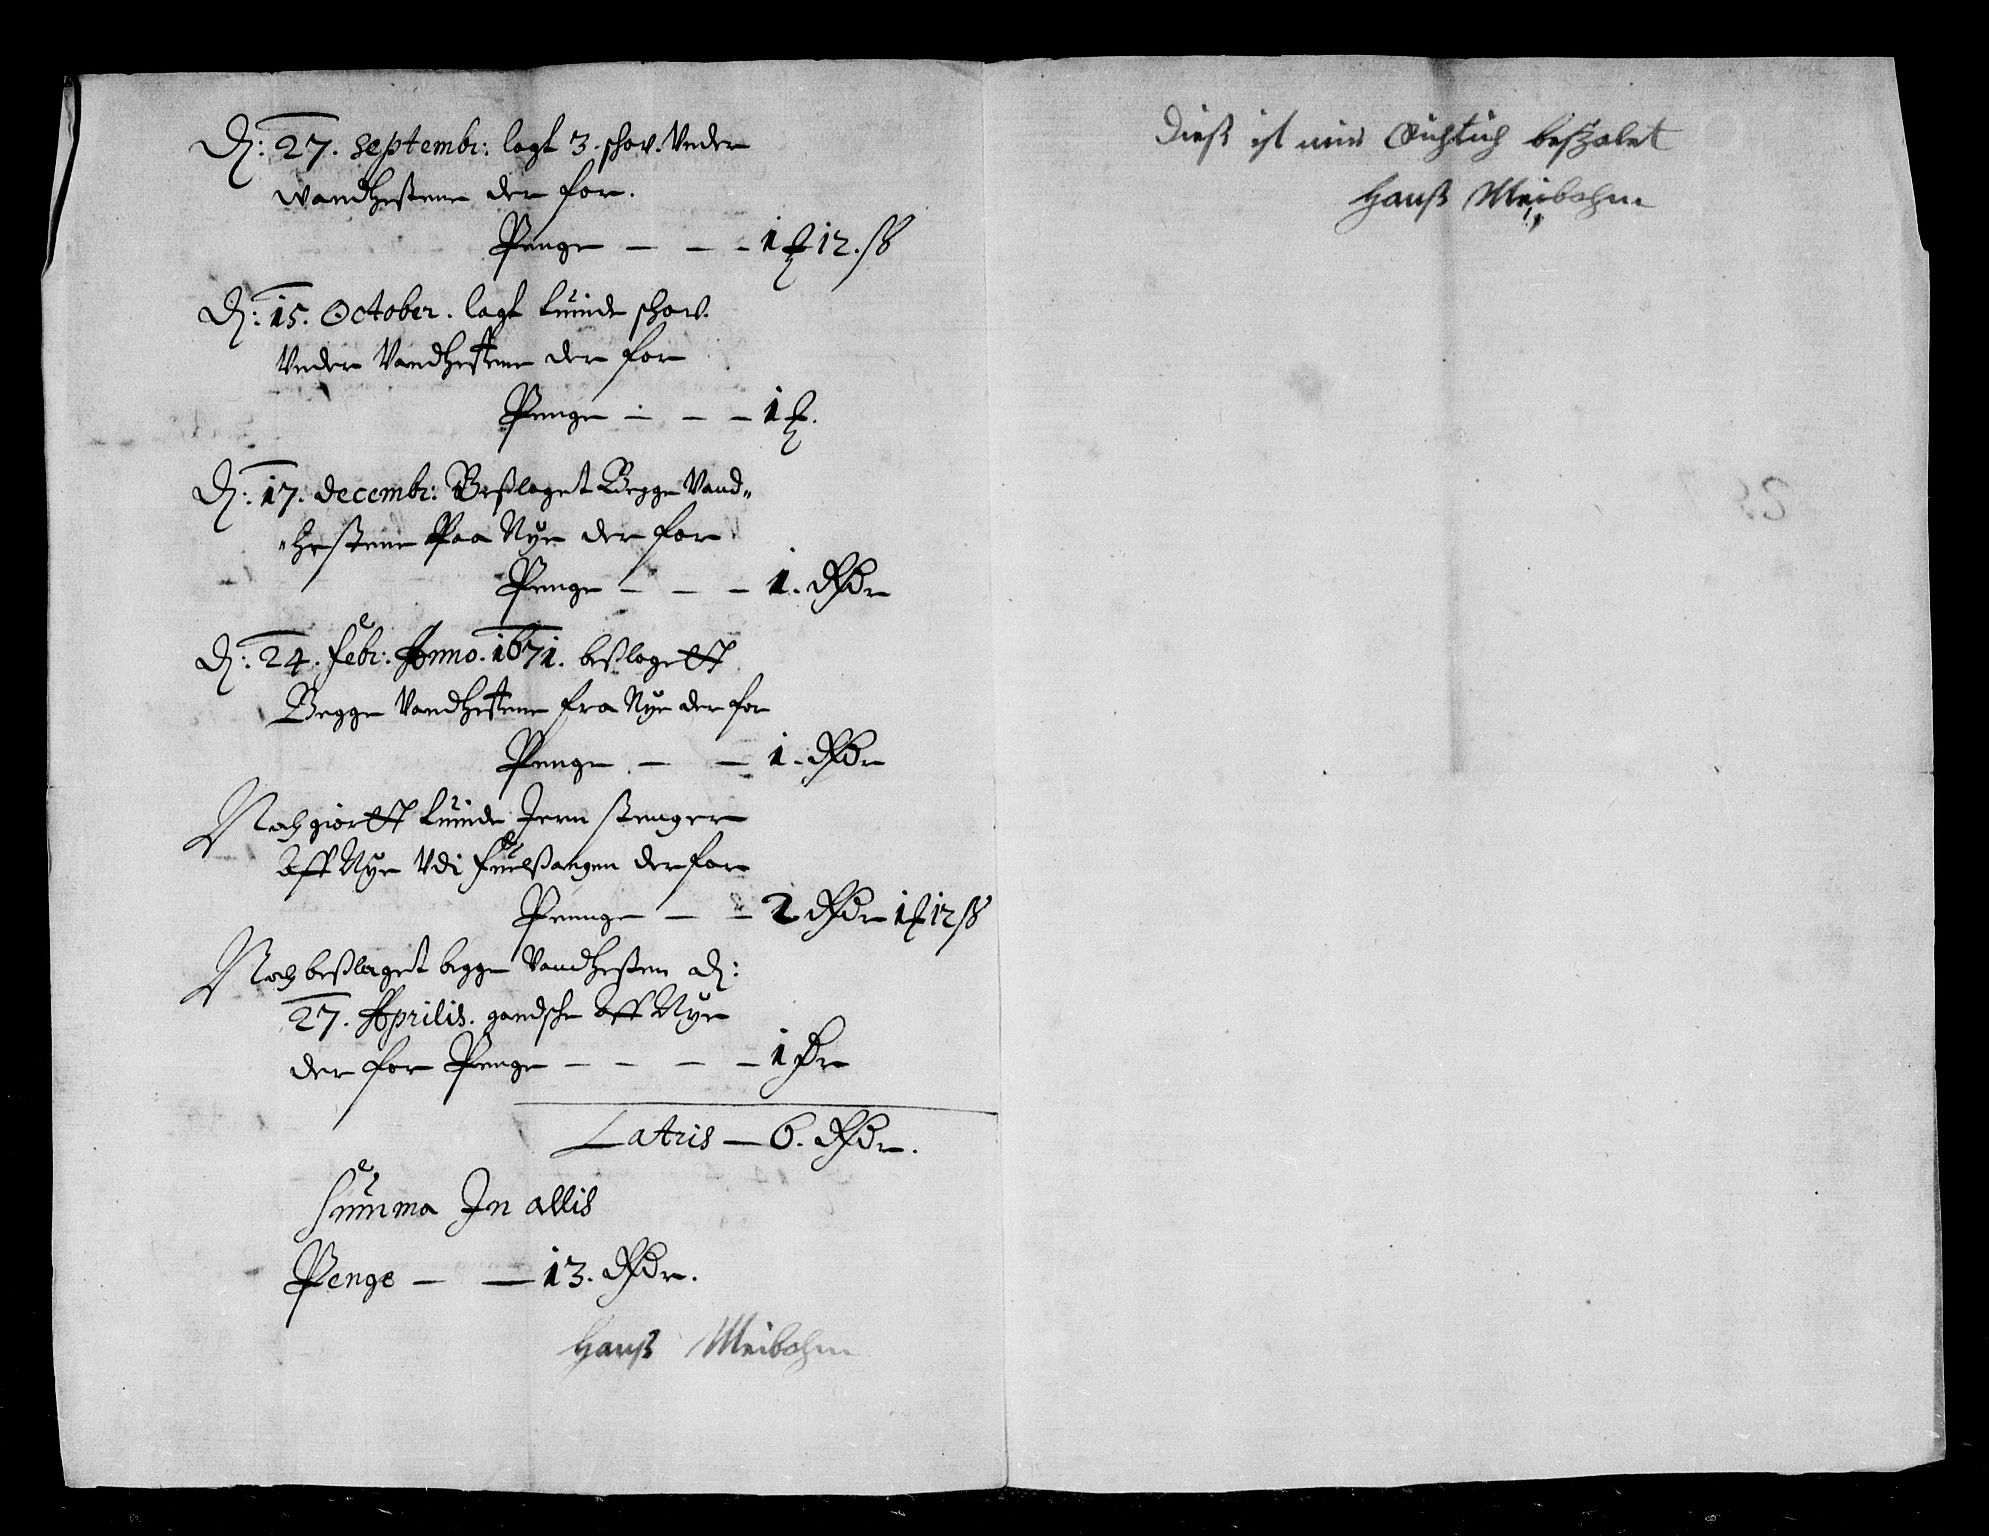 D: 27. Septembr: lagt 3. schov. Vnder
wandhestene der for.
Penge — — 1 ƶ 12. ß
D: 15. October. lagt tuinde schov.
Vnder Vandhestene der for
Penge — — 1 ƶ.
D: 17. decembr: Beslaget Begge Vand„
„hestene Paa Nye der for
Penge — — — 1. Rdr
D: 24. febr: Anno. 1671. beslagett
Begge Vandhestene fra Nye der for
Penge — — 1. Rdr
Noch giortt tuinde Jern stenger
Aff Nye Vdi der for
Penge — — 2 Rdr 1 ƶ 12 ß
Noch beslaget begge Vandhesten ad:
27. Aprilis. gandsche Aff Nye
der for Penge — — — — 1 Rdr
Latris — 6. Rdr.
Summa In allis
Penge — — 13. Rdr.
Hanß Meibohm
Dieß ist mir Richtich beßzalet
Hanß Meibohm